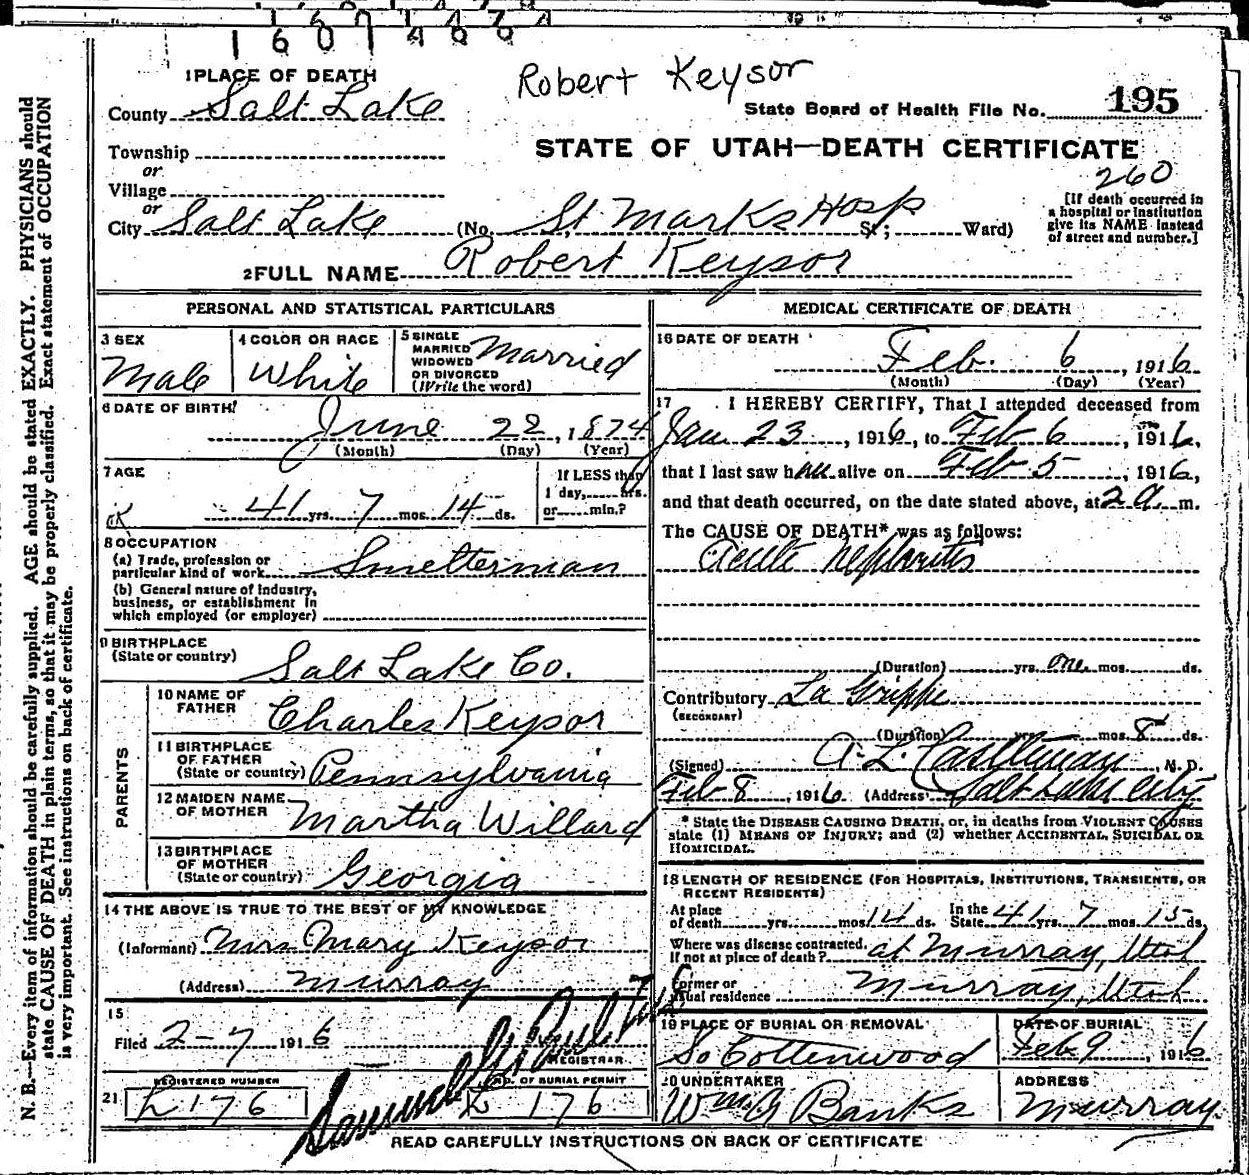 1601468
Robert Keysor
1 PLACE OF DEATH
County Salt Lake
State Board of Health File No. 195
STATE OF UTAH—DEATH CERTIFICATE
260
Township
or
Village
or
City Salt Lake (No. St Marks Hosp St; Ward)
[If death occurred in a hospital or institution give its NAME instead of street and number.]
2 FULL NAME Robert Keysor
PERSONAL AND STATISTICAL PARTICULARS
3 SEX Male
4 COLOR OR RACE White
5 SINGLE MARRIED WIDOWED OR DIVORCED (Write the word) Married
6 DATE OF BIRTH June 22, 1874
(Month) (Day) (Year)
7 AGE 41 yrs. 7 mos. 14 ds.
If LESS than 1 day, hrs. or min.?
8 OCCUPATION
(a) Trade, profession or particular kind of work Smelterman
(b) General nature of industry, business, or establishment in which employed (or employer)
9 BIRTHPLACE (State or country) Salt Lake Co.
PARENTS
10 NAME OF FATHER Charles Keysor
11 BIRTHPLACE OF FATHER (State or country) Pennsylvania
12 MAIDEN NAME OF MOTHER Martha Willard
13 BIRTHPLACE OF MOTHER (State or country) Georgia
14 THE ABOVE IS TRUE TO THE BEST OF MY KNOWLEDGE
(Informant) Mrs Mary Keysor
(Address) Murray
15
Filed 2-7 1916
Samuel G. Paul
REGISTRAR
21 REGISTERED NUMBER 176
NO. OF BURIAL PERMIT 176
MEDICAL CERTIFICATE OF DEATH
16 DATE OF DEATH Feb. 6, 1916
(Month) (Day) (Year)
17 I HEREBY CERTIFY, That I attended deceased from
Jan 23, 1916, to Feb 6, 1916,
that I last saw him alive on Feb 5, 1916,
and that death occurred, on the date stated above, at 2 a. m.
The CAUSE OF DEATH* was as follows:
Acute nephritis
(Duration) yrs. one mos. ds.
Contributory La Grippe
(SECONDARY)
(Duration) yrs. mos. 8 ds.
(Signed) A. L. Castleman, M. D.
Feb 8, 1916 (Address) Salt Lake City
* State the DISEASE CAUSING DEATH, or, in deaths from VIOLENT CAUSES
state (1) MEANS OF INJURY; and (2) whether ACCIDENTAL, SUICIDAL OR
HOMICIDAL.
18 LENGTH OF RESIDENCE (FOR HOSPITALS, INSTITUTIONS, TRANSIENTS, OR
RECENT RESIDENTS)
At place of death yrs. mos. 14 ds. In the State 41 yrs. 7 mos. 15 ds.
Where was disease contracted, If not at place of death? at Murray, Utah
Former or usual residence Murray, Utah
19 PLACE OF BURIAL OR REMOVAL So Cottenwood
DATE OF BURIAL Feb 9, 1916
20 UNDERTAKER Wm Banks
ADDRESS Murray
READ CAREFULLY INSTRUCTIONS ON BACK OF CERTIFICATE
N. B.—Every item of information should be carefully supplied. AGE should be stated EXACTLY. PHYSICIANS should
state CAUSE OF DEATH in plain terms, so that it may be properly classified. Exact statement of OCCUPATION
is very important. See instructions on back of certificate.